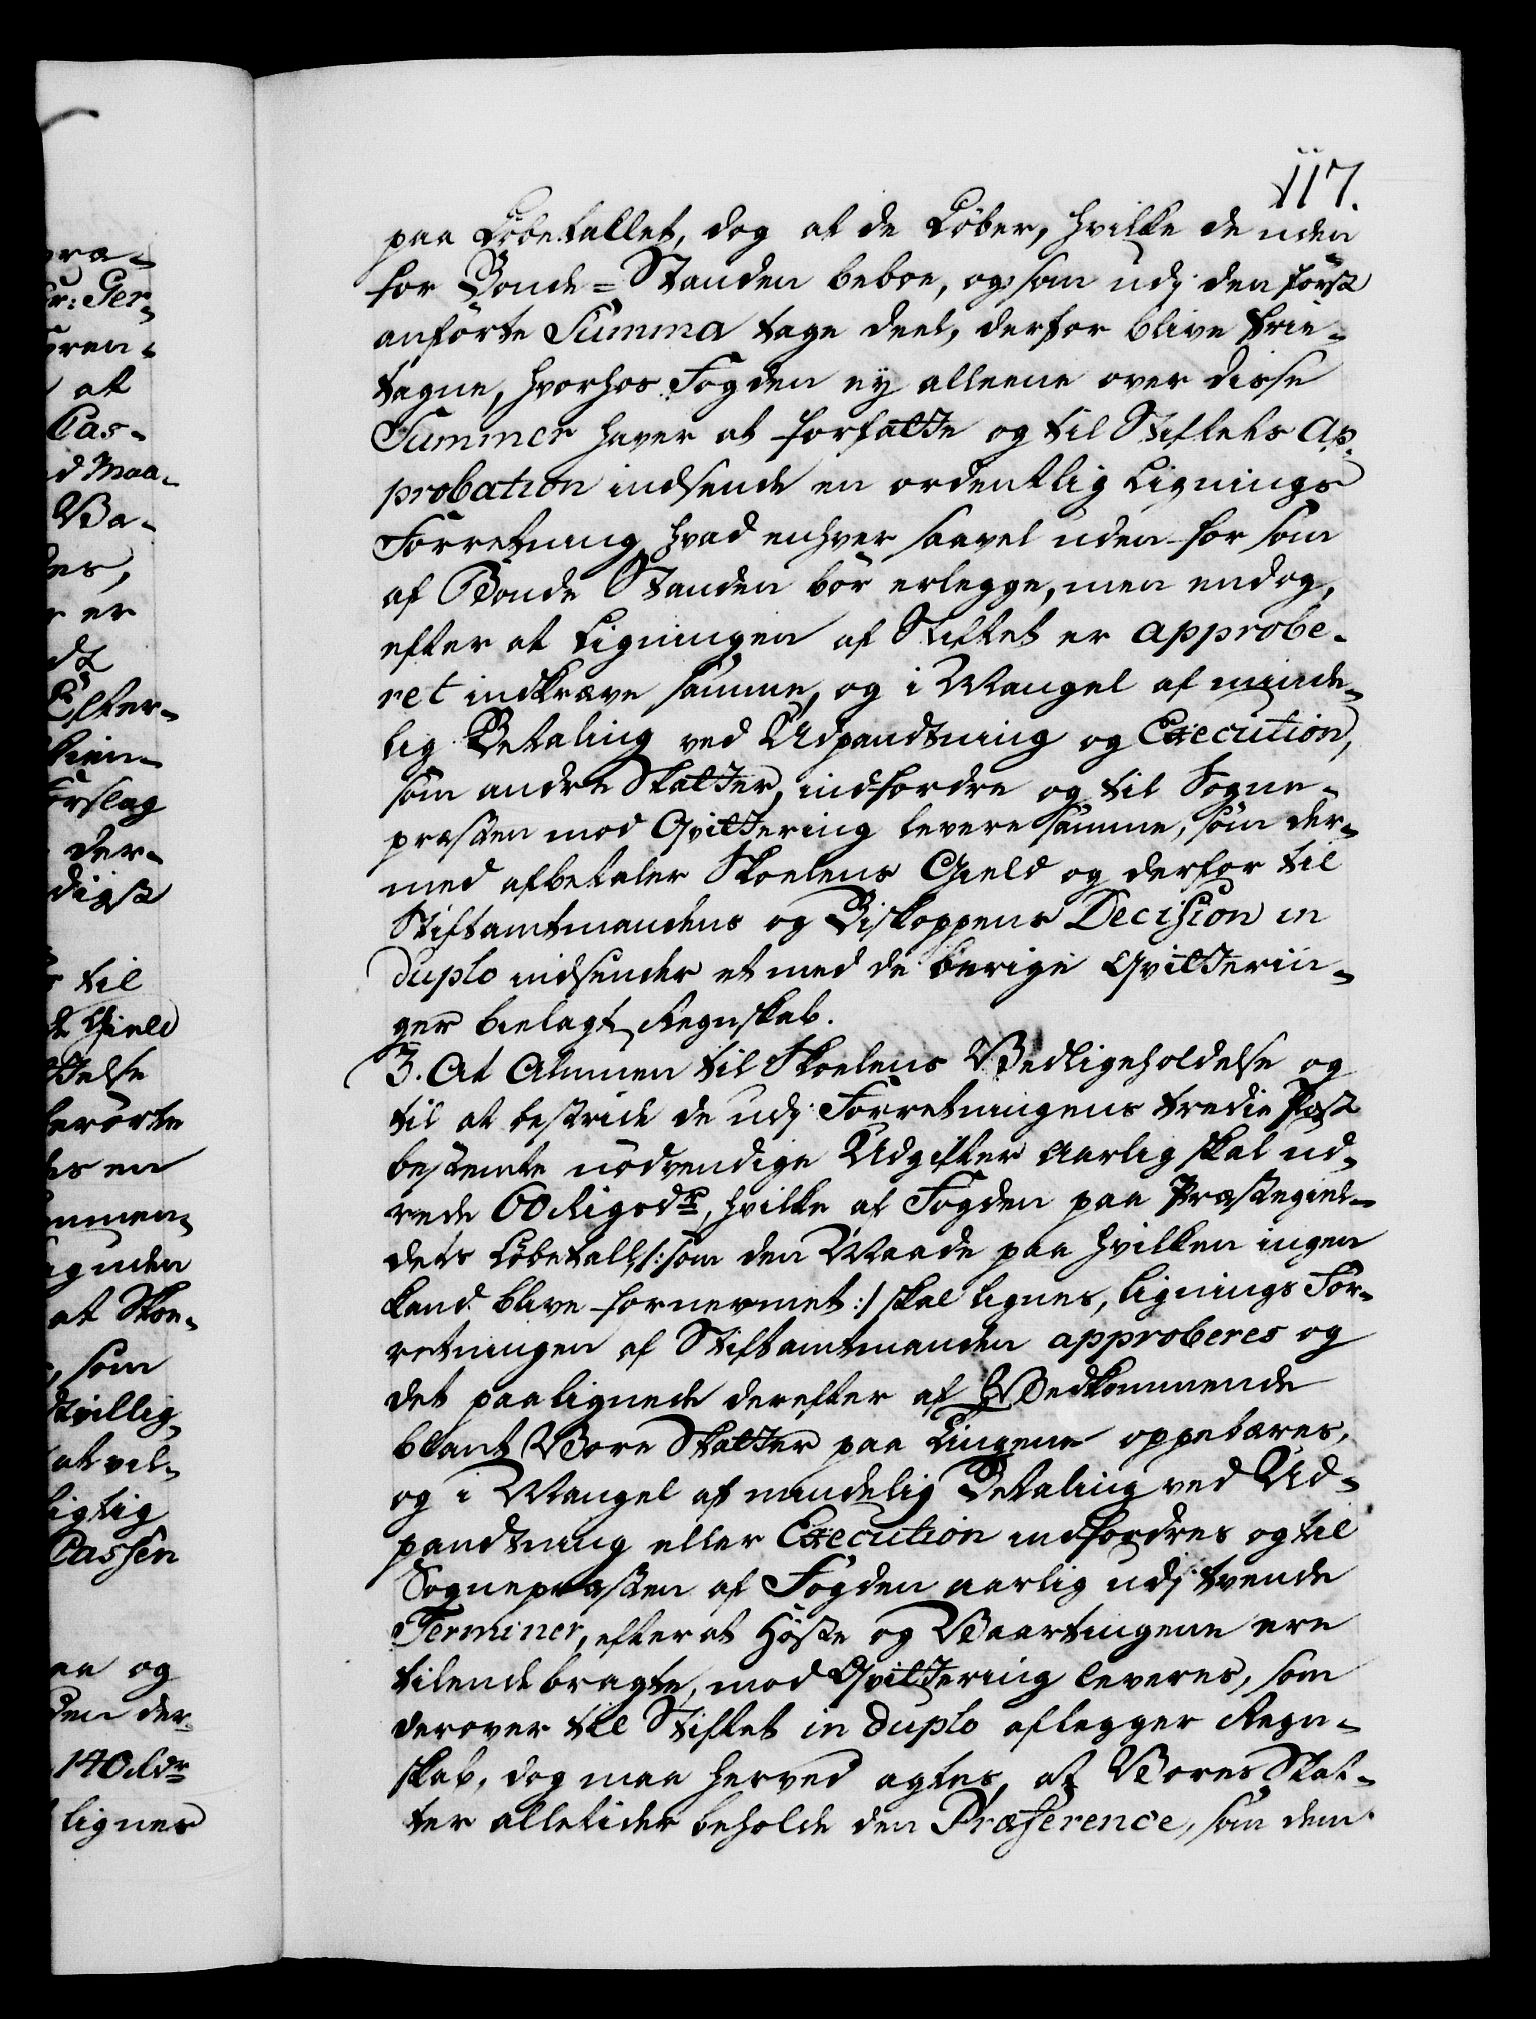 117.
paa Löbetallet, dog at de Löber, hvilke de uden
for Bonde=Standen beboe, og som udj den först
anförte Summa tage deel, derfor blive frie-
tagne, hvorhos Fogden ey alleene over disse
Summer haver at forfatte og til Stiftets Ap-
probation indsende en ordentlig Lignings
Forretning hvad enhver saavel uden for som
af Bonde Standen bör erlegge, men endog,
efter at Ligningen af Stiftet er approbe-
ret indkræve samme, og i Mangel af minde-
lig Betaling ved Udpandtning og Execution,
som andre Skatter, indfordre og til Sogne-
præsten mod Qvittering levere samme, som der-
med afbetaler Skoelens Gield og derfor til
Stiftamtmandens og Biskoppens Decision in
duplo indsender et med de övrige Qvitterin-
ger bielagt Regnskab.
3. At Almuen til Skoelens Vedligeholdelse og
til at bestride de udj Forretningens tredie Post
bestemte nödvendige Udgifter aarlig skal ud-
rede 60 Rigsdr, hvilke af Fogden paa Præstegiel-
dets Löbetall /: som den Maade paa hvilken ingen
kand blive fornermet :/ skal lignes, Lignings For-
retningen af Stiftamtmanden approberes og
det paalignede derefter af Vedkommende
blant Vore Skatter paa Tingene oppebæres,
og i Mangel af mindelig Betaling ved Ud-
pandtning eller Execution indfordres og til
Sognepræsten af Fogden aarlig udj tvende
Terminer, efter at Höste og Vaartingene ere
tilendebragte, mod Qvittering leveres, som
derover til Stiftet in duplo aflegger Regn-
skab, dog maa herved agtes, at Vores Skat-
ter alletider beholde den Præference, som dem